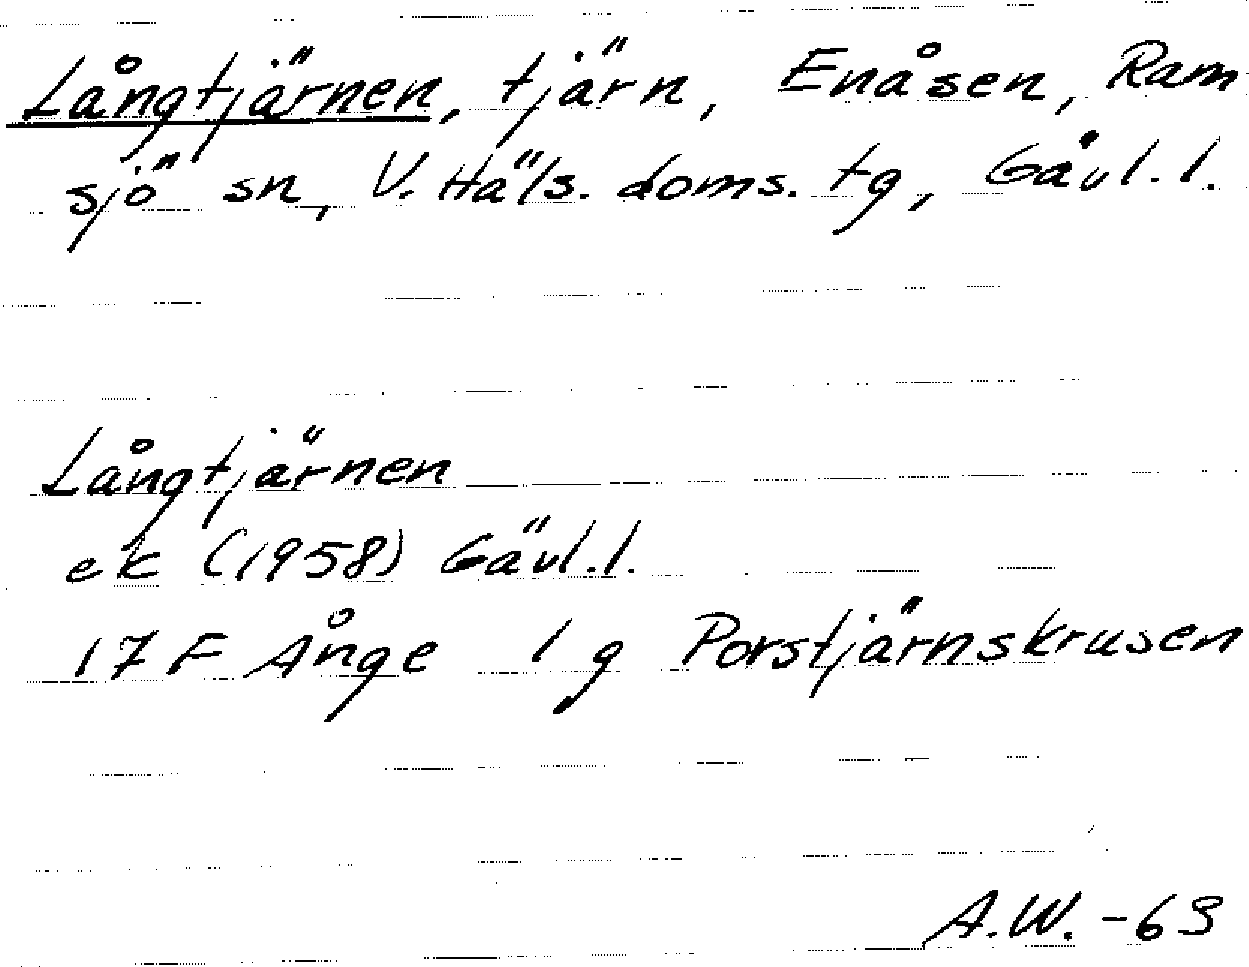 Långtjärnen, tjärn, Enåsen, Ram-
sjö sn, V. Häls. doms. tg, Gävl. l.
Långtjärnen
ek (1958) Gävl. l.
17 F Ånge 1 g Porstjärnskrusen
A.W. -63